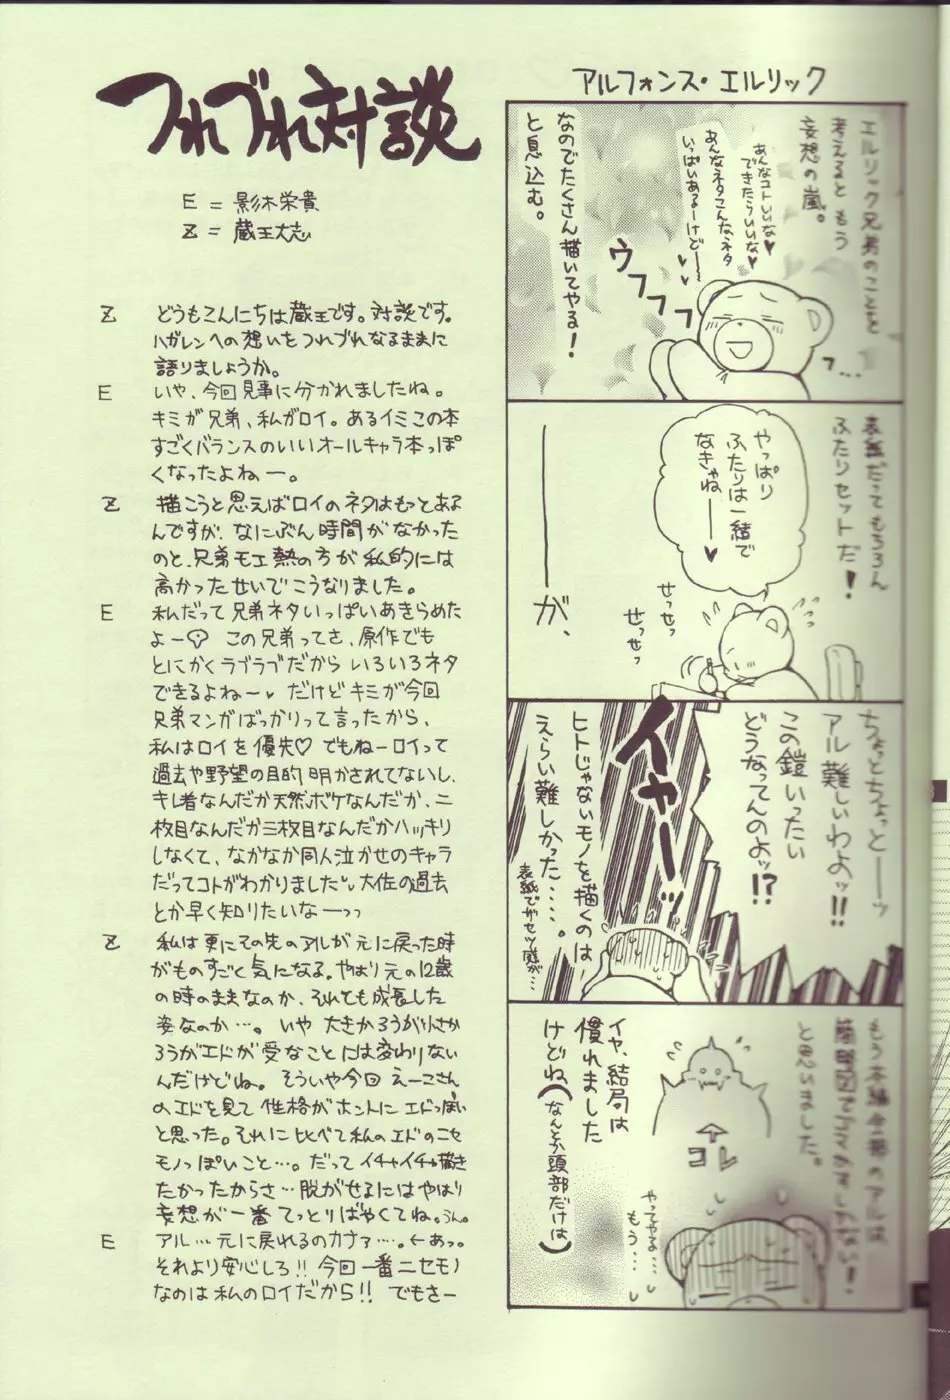 つれづれ対談
E = 影木栄貴
Z = 蔵王大志
Z どうもこんにちは蔵王です。対談です。
ハガレンへの想いをつれづれなるままに
語りましょうか。
E いや、今回見事に分かれましたね。
キミが兄弟、私がロイ。あるイミこの本
すごくバランスのいいオールキャラ本っぽ
くなったよねー。
Z 描こうと思えばロイのネタはもっとあるよ
んですが、なにぶん時間がなかった
のと、兄弟モエ熱の方が私的には
高かったせいでこうなりました。
E 私だって兄弟ネタいっぱいあきらめた
よー この兄弟ってさ、原作でも
とにかくラブラブだからいろいろネタ
できるよねー♥ だけどキミが今回
兄弟マンガばっかりって言ったから、
私はロイを優先♡ でもねーロイって
過去や野望の目的明かされてないし、
キレ者なんだか天然ボケなんだか、二
枚目なんだか三枚目なんだかハッキリ
しなくて、なかなか同人泣かせのキャラ
だってコトがわかりました 大佐の過去
とか早く知りたいなーっっ
Z 私は更にその先のアルが元に戻った時
がものすごく気になる。やはり元の12歳
の時のままなのか、それとも成長した
姿なのか…。いや大きかろうが小さか
ろうがエドが受なことには変わりない
んだけどね。そういや今回えーこさん
のエドを見て性格がホントにエドっぽい
と思った。それに比べて私のエドのニセ
モノっぽいこと…。だってイチャイチャ描き
たかったからさ…脱がせるにはやはり
妄想が一番てっとりばやくてね。うん。
E アル…元に戻れるのカナァ…。←あっ。
それより安心しろ!! 今回一番ニセモノ
なのは私のロイだから!! でもさー
アルフォンス・エルリック
エルリック兄弟のことを
考えるともう
妄想の嵐。
あんなコトいいな♥
できたらいいな♥
あんなネタこんなネタ
いっぱいあるーけどー
ウフフフフ
フ…
なのでたくさん描いてやる!
と息込む。
表紙だってもちろん
ふたりセットだ!
やっぱり
ふたりは一緒で
なきゃねー♥
せっせっ
せっせっ
―が、
ちょっとちょっとーッ
アル難しいわよッ!!
この鎧いったい
どうなってんのよッ!?
イヤーーッ
ヒトじゃないモノを描くのは
えらい難しかった…。
もう本編全部のアルは
簡略図でゴマかすしかない!
と思いました。
コレ
イヤ、結局は
慣れました
けどね(なんとか頭部だけは)
やってやる…
もう…